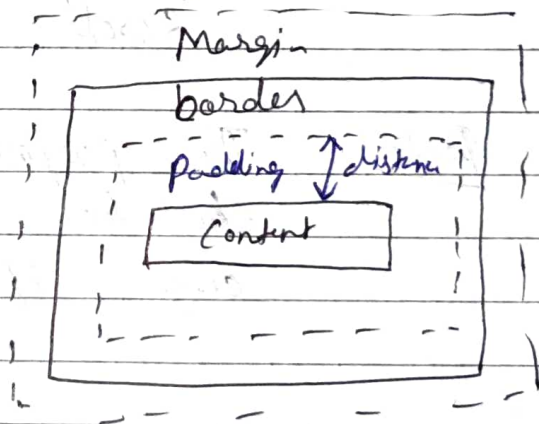 Margin
border
padding distance
Content